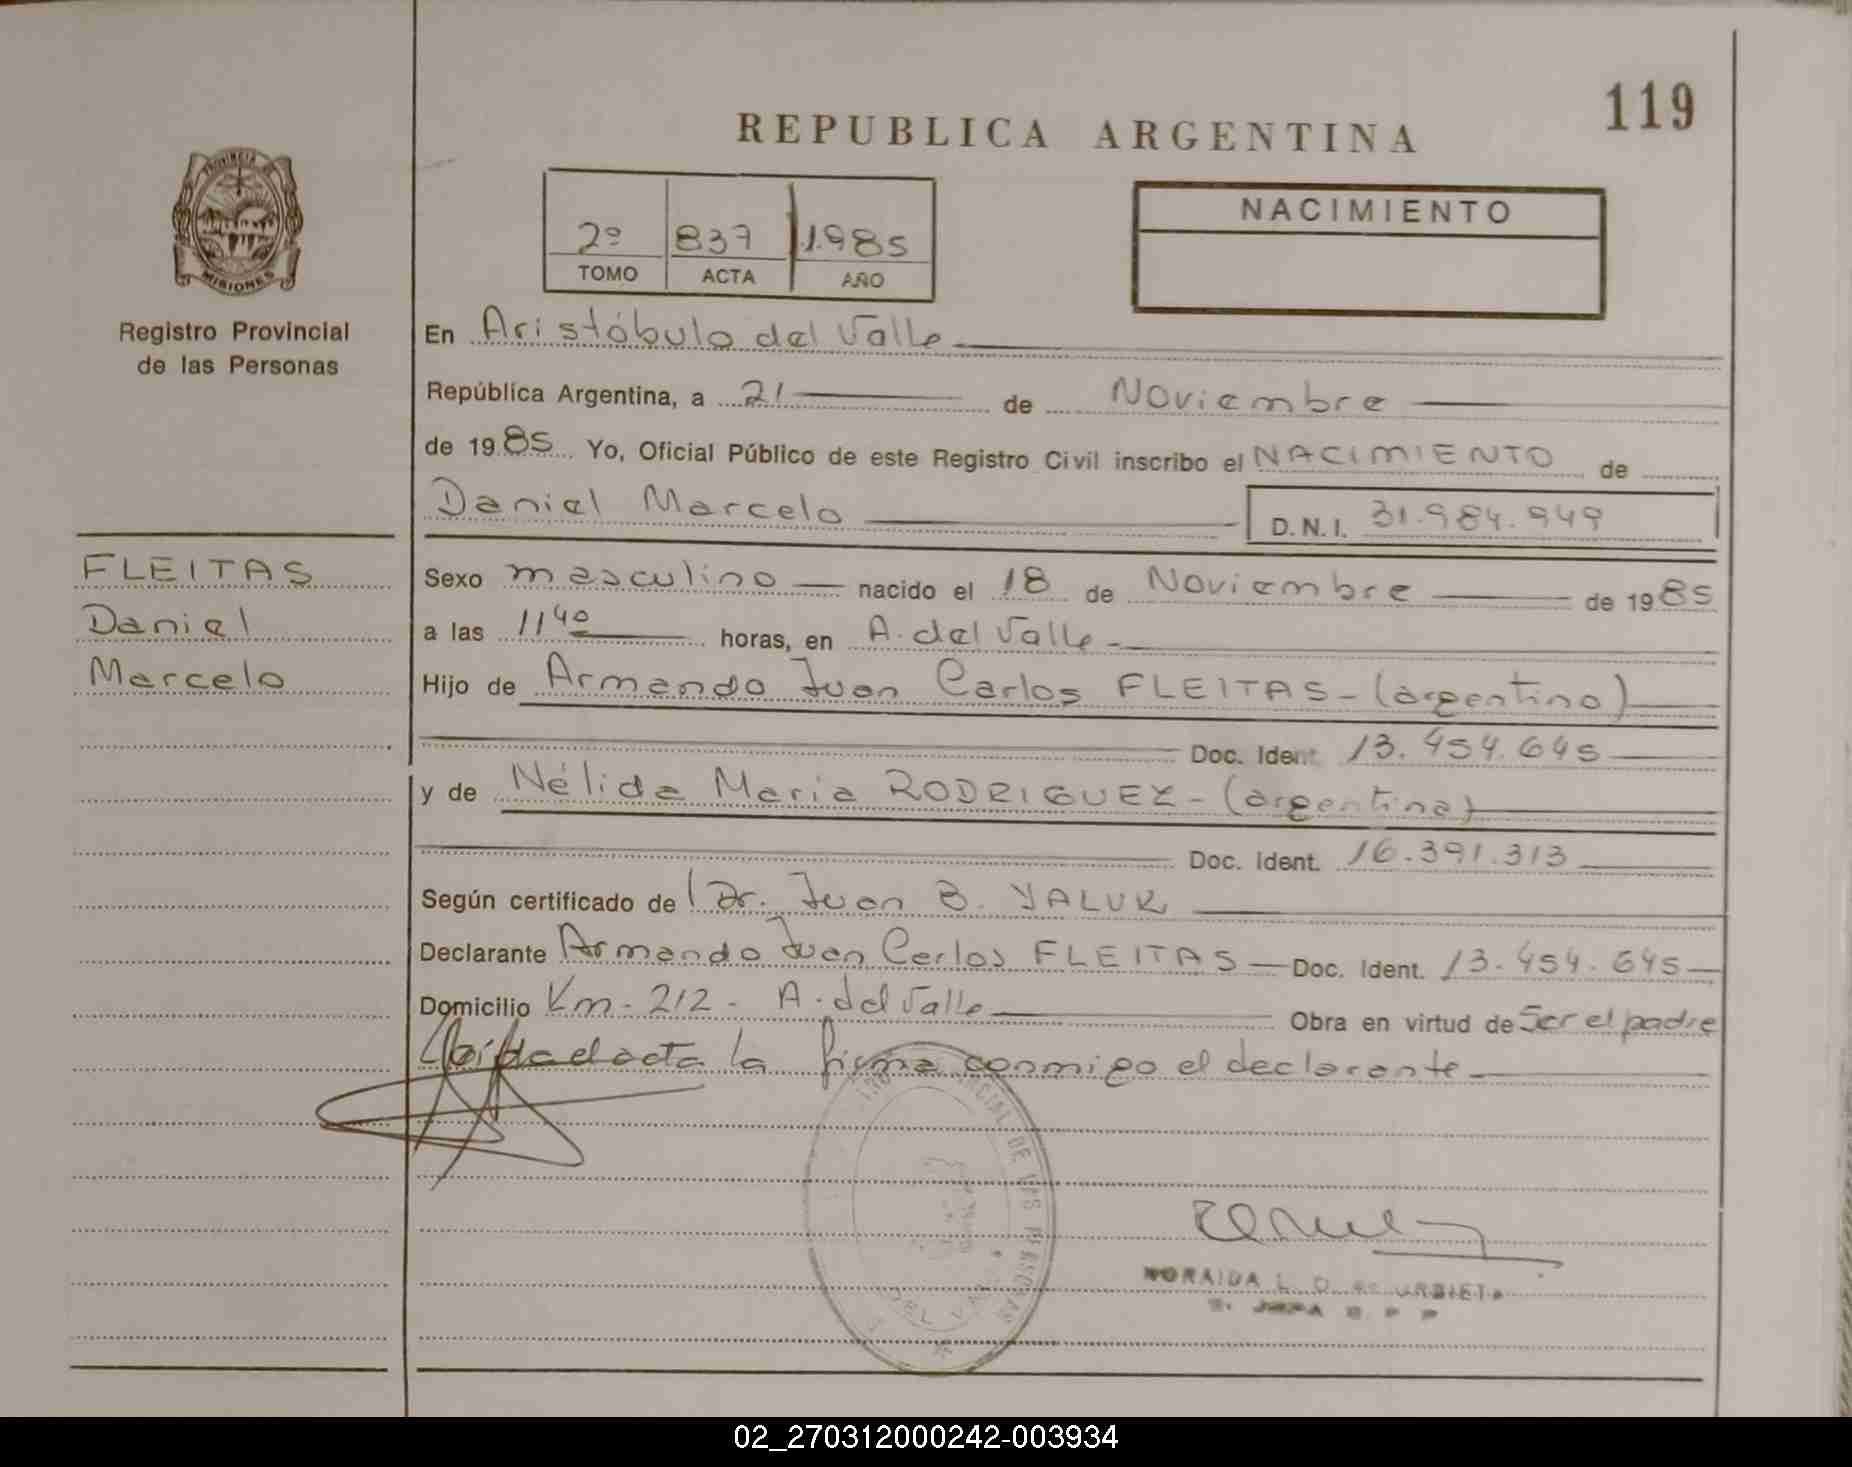 119
REPUBLICA ARGENTINA
PROVINCIA
MISIONES
Registro Provincial
de las Personas
2º 837 1.985
TOMO ACTA AÑO
NACIMIENTO
En Aristóbulo del Valle
República Argentina, a 21 de Noviembre
de 1985 Yo, Oficial Público de este Registro Civil inscribo el NACIMIENTO de
Daniel Marcelo D.N.I. 31.984.949
FLEITAS
Daniel
Marcelo
Sexo masculino nacido el 18 de Noviembre de 1985
a las 11 40 horas, en A. del Valle -
Hijo de Armando Juan Carlos FLEITAS - (argentino)
Doc. Ident. 13.454.645
y de Nélida Maria RODRIGUEZ - (argentina)
Doc. Ident. 16.391.313
Según certificado de Dr. Juan B. YALUK
Declarante Armando Juan Carlos FLEITAS - Doc. Ident. 13.454.645
Domicilio Km - 212 - A. del Valle Obra en virtud de Ser el padre
Leída el acta la firma conmigo el declarante
DE LAS PERSONAS
DEL VALLE
NORAIDA L. D. de URBIETA
02_270312000242-003934